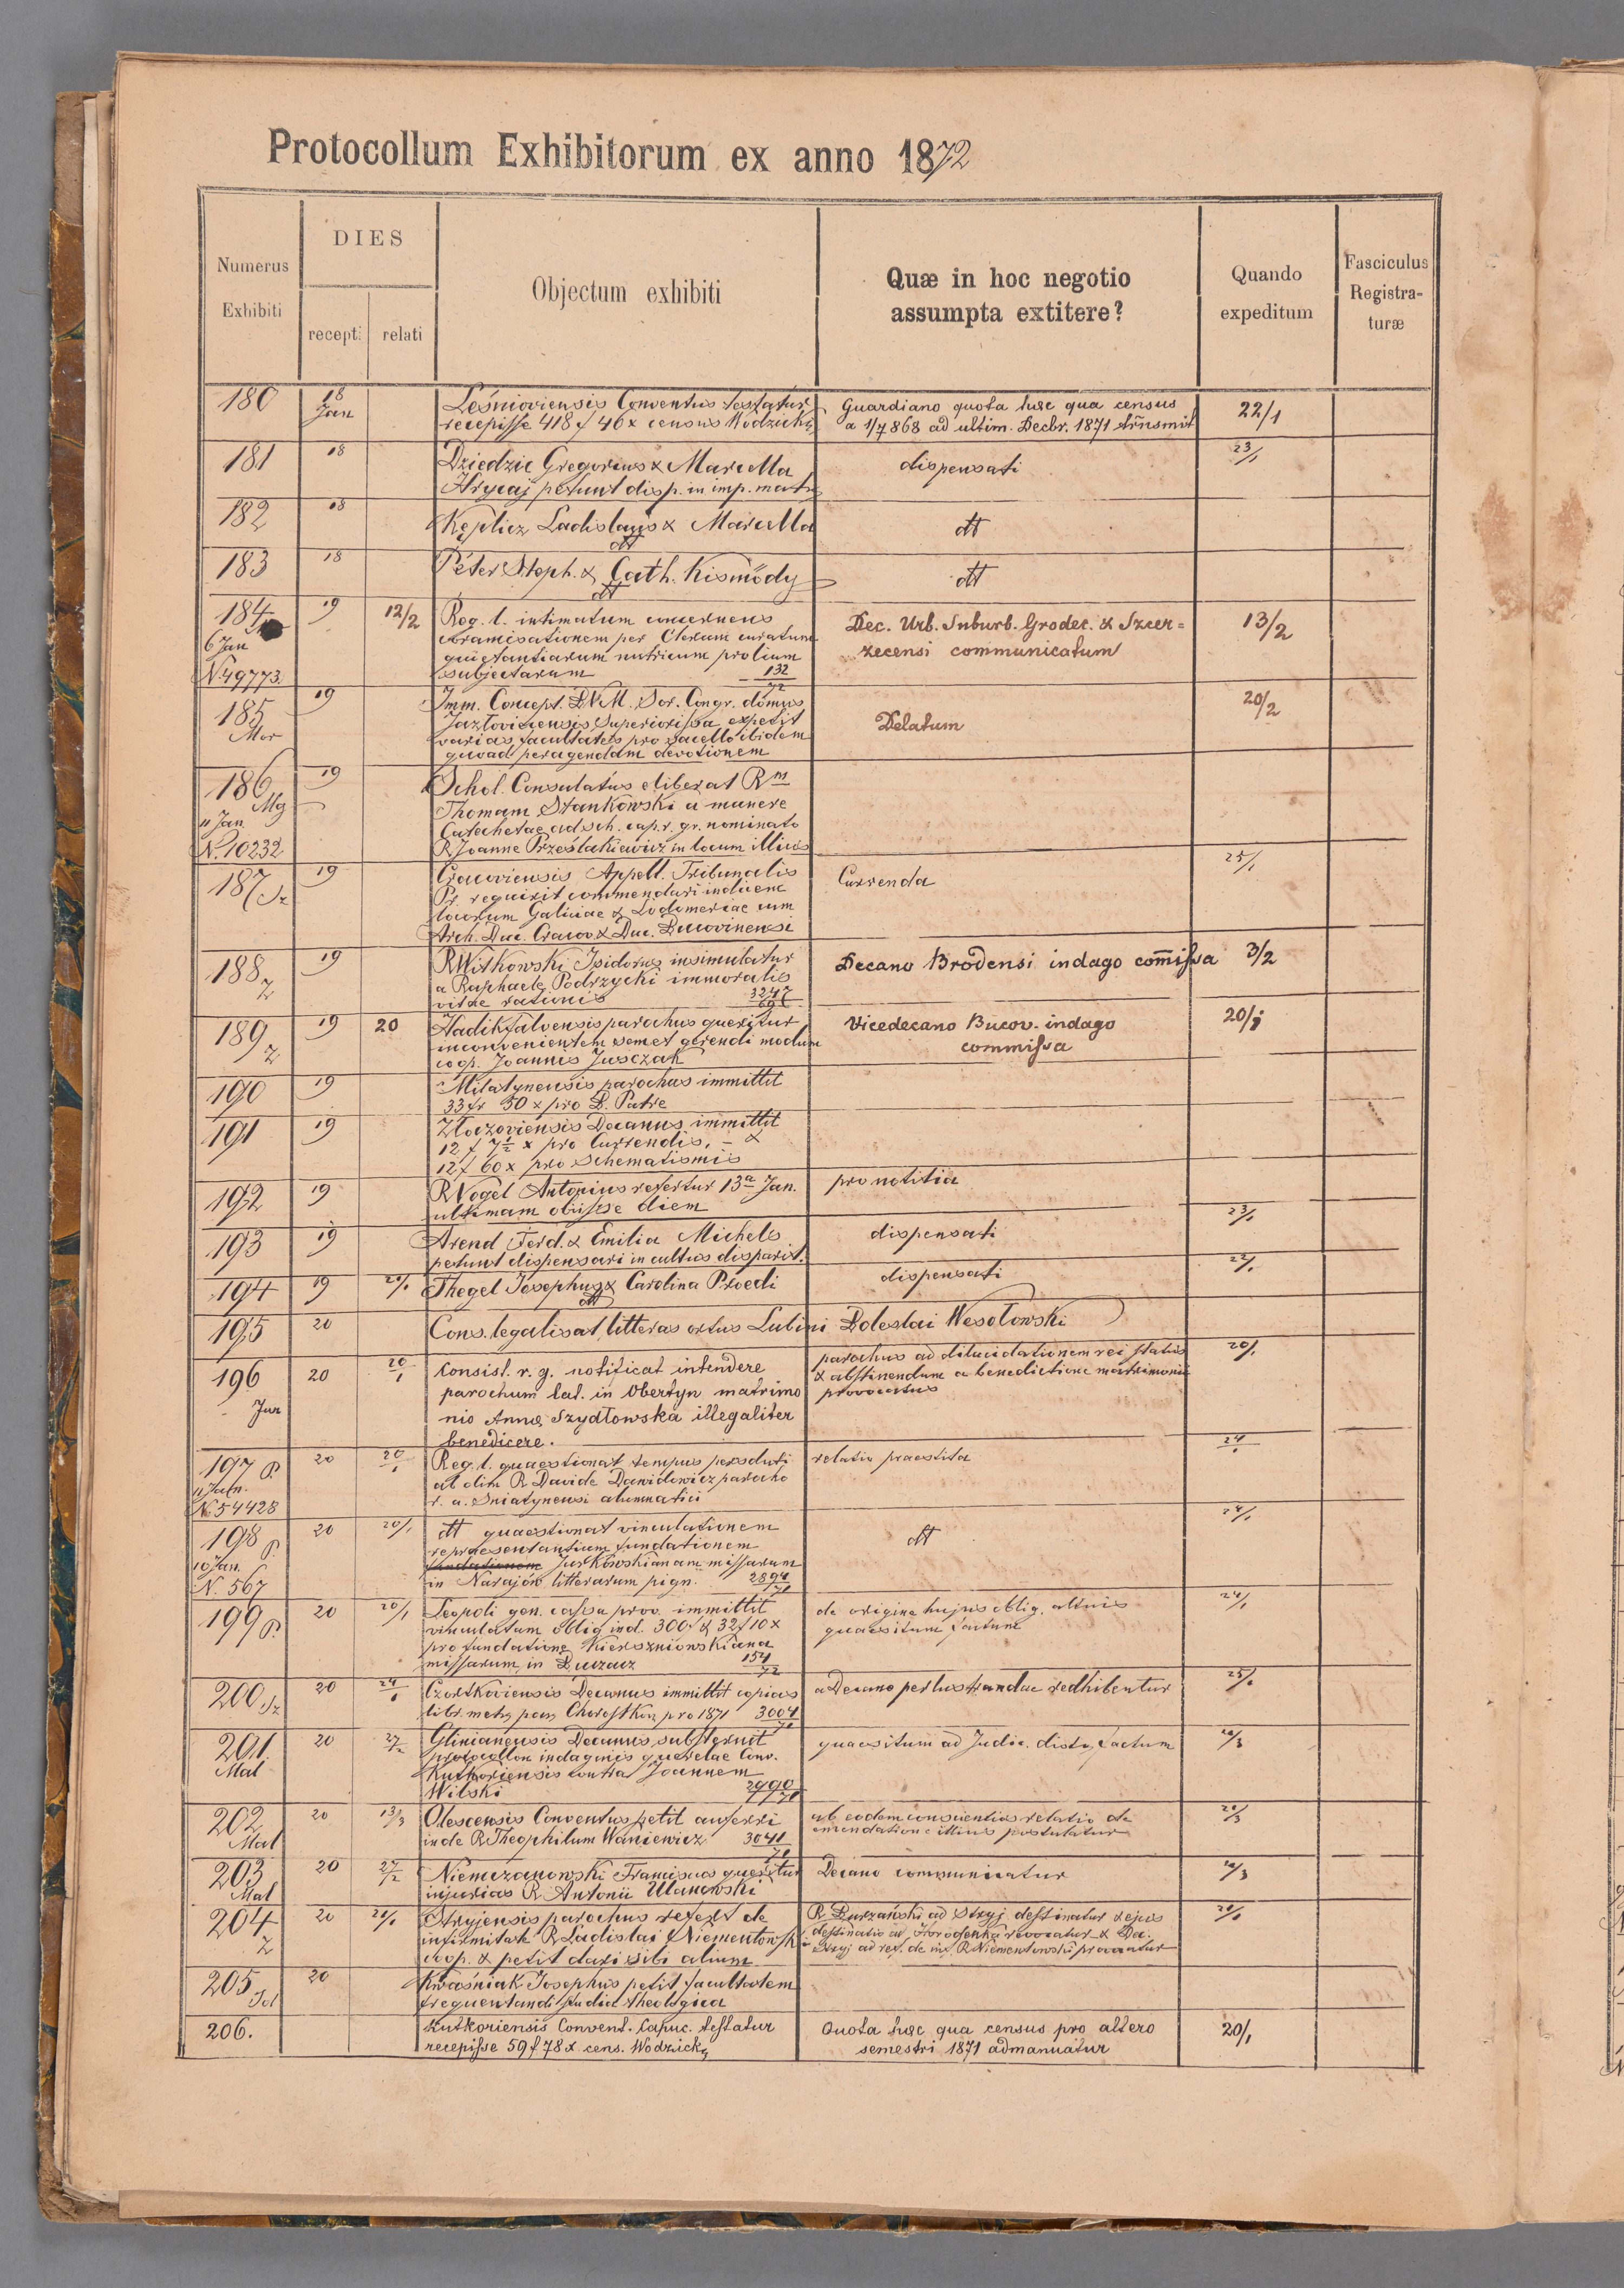 Protocollum Exhibitorum ex anno 1872
Numerus
Exhibiti
DIES
recepti
relati
Objectum exhibiti
Quæ in hoc negotio
assumpta extitere?
Quando
expeditum
Fasciculus
Registra-
turæ
180 18 Jan Leśnioviensis Conventus testatur Guardiano quota haec qua census 22/1
recepisse 418 f 46 x census Wodzicki a 1/7 868 ad ultim. Decbr. 1871 trñsmit
181 18 Dziedzic Gregorius & Marcella dispensati 23/1
Hrycaj petunt disp. in imp. matr
182 18 Kęplicz Ladislaus & Marcella dt
dt
183 18 Péter Steph. & Cath. Kismödy dt
dt
184 19 12/2 Reg. l. intimatum concernens Dec. Urb. Suburb. Grodec. & Szcer= 13/2
6 Jan coramisationem per Clerum curatum zecensi communicatum
quietantiarum nutricum prolium
N. 49773 subjectarum 132/72
185 19 Imm. Concept. B.V.M. Sor. Congr. domus 20/2
Mor Jazłoviciensis Superiorissa expetit Delatum
varias facultates pro sacello ibidem
quoad peragendam devotionem
186 19 Schol. Consulatus eliberat Rm
Mg Thomam Stankowski a munere
11 Jan Catechetae ad sch. cap. r. gr. nominato
N. 10232 R Joanne Prześlakiewicz in locum illius
187 Sz 19 Cracoviensis Appell. Tribunalis Currenda 25/1
Pr. requirit commendari indicem
locorum Galiciae & Lodomeriae cum
Arch. Duc. Cracov & Duc. Bucovinensi
188 Z 19 R Witkowski Isidorus insimulatur Decano Brodensi indago comissa 3/2
a Raphaele Podrzycki immoralis
vitae rationis 3247
189 Z 19 20 Hadikfalvensis parochus queritur Vicedecano Bucov. indago 20/1
inconvenientem semet gerendi modum commissa
coop. Joannis Jusczak
190 19 Milatynensis parochus immittit
33 fr 50 x pro S. Patre
191 19 Złoczoviensis Decanus immittit
12 f 7½ x pro Currendis, – &
12 f 60 x pro Schematismis
192 19 R Vogel Antonius refertur 13a Jan. pro notitia
ultimam obiisse diem
193 19 Arend Ferd. & Emilia Michels dispensati 23/1
petunt dispensari in cultus disparit.
194 19 20/1 Thegel Josephus & Carolina Ploedi dispensati 22/1
dt
195 20 Cons. legalisat litteras ortus Lubini Boleslai Wesołowski
196 20 20/1 Consist. r. g. notificat intendere parochus ad dilucidationem rei status 20/1
Jur parochum lat. in Obertyn matrimo & abstinendum a benedictione matrimonii
nio Annæ Szydłowska illegaliter provocatus
benedicere.
197 P. 20 20/1 Reg. l. quaestionat tempus persoluti relatio praestita 24/1
11 Jan. ab olim R Davide Dawidowicz parocho
N. 54428 r. a. Sniatynensi alumnatici
198 P. 20 20/1 dt quaestionat vinculationem dt 24/1
repraesentantium fundationem
10 Jan. fundationem Jurkowskianam missarum
N. 567 in Narajów litterarum pign. 2894/71
199 P. 20 20/1 Leopoli gen. cassa prov. immittit de origine hujus oblig. alterius 24/1
vinculatum oblig ind. 300 f & 32 f 10 x quaesitum factum
pro fundatione Kierszniowskiana
missarum in Buczacz 154/72
200 Sz 20 24/1 Czortkoviensis Decanus immittit copias a Decano perlustrandae redhibentur 25/1
libr. metr. par. Chorostków pro 1871 3004/71
201 20 27/2 Glinianensis Decanus substernit quaesitum ad Judic. distr. factum 20/3
Mal protocollon indaginis querelae Conv.
Kutkoriensis contra Joannem
Wilski 2990/71
202 20 13/3 Olescensis Conventus petit auferri ab eodem conscientius relatio de 20/3
Mal inde R Theophilum Waniewicz 3041/71 emendatione illius postulatur
203 20 27/2 Niemczanowski Franciscus queritur Decano communicatur 20/3
Mal injurias R Antonii Ulanowski
204 20 20/1 Stryjensis parochus refert de R Burzański ad Stryj destinatur & ejus 20/1
Z infirmitate R Ladislai Niementowski destinatio ad Horodenka revocatur & Dec.
coop. & petit dari sibi alium Stryj ad ref. de inf. R Niementowski provocatur
205 20 Kwaśniak Josephus petit facultatem
frequentandi studia theologica
206. Kutkoriensis Convent. Capuc. testatur Quota haec qua census pro altero 20/1
recepisse 59 f 78 x cens. Wodzicki semestri 1871 admanuatur